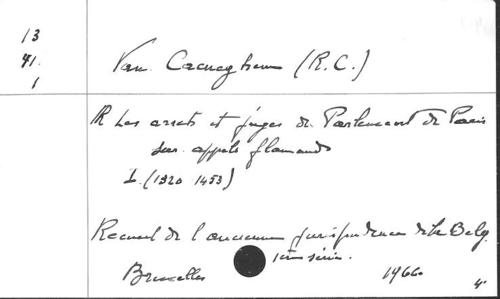 13
41.
1
Van Caeneghem (R.C.)
R Les arrets et juges du Parlement de Paris
sur appels flamands
I. (1320 1453)
Recueil de l'ancienne jurisprudence de la Belg.
1ère série.
Bruxelles 1966 4°